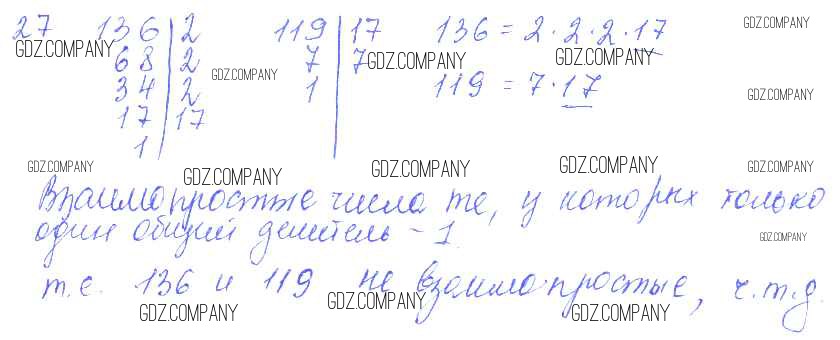 27 136 | 2 119 | 17 136 = 2 · 2 · 2 · 17 GDZ.COMPANY
GDZ.COMPANY 68 | 2 7 | 7 GDZ.COMPANY GDZ.COMPANY
34 | 2 GDZ.COMPANY 1 119 = 7 · 17 GDZ.COMPANY
17 | 17
1
GDZ.COMPANY GDZ.COMPANY GDZ.COMPANY GDZ.COMPANY GDZ.COMPANY
Взаимо простые числа те, у которых только
один общий делитель - 1. GDZ.COMPANY
т.е. 136 и 119 не взаимо-простые, ч.т.д.
GDZ.COMPANY GDZ.COMPANY GDZ.COMPANY